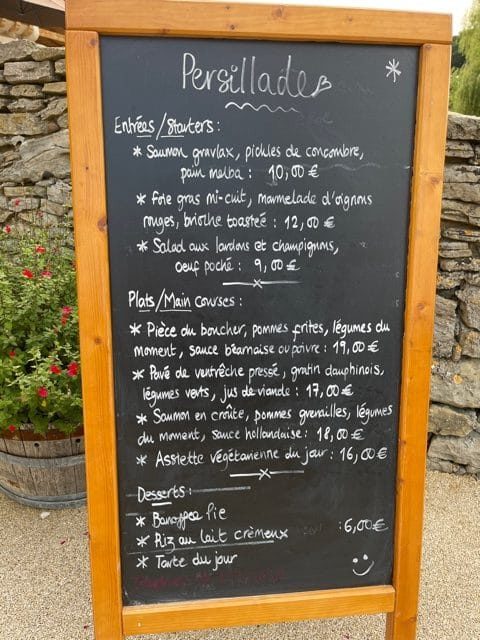 Persillade
Entrées/Starters :
* Saumon gravlax, pickles de concombre,
pain melba : 10,00 €
* Foie gras mi-cuit, marmelade d'oignons
rouges, brioche toastée : 12,00 €
* Salad aux lardons et champignons,
oeuf poché : 9,00 €
Plats/Main courses :
* Pièce du boucher, pommes frites, légumes du
moment, sauce béarnaise ou poivre : 19,00 €
* Pavé de ventrêche pressé, gratin dauphinois,
légumes verts, jus de viande : 17,00 €
* Saumon en croûte, pommes grenailles, légumes
du moment, sauce hollandaise : 18,00 €
* Assiette végétarienne du jour : 16,00 €
Desserts :
* Banoffee Pie
* Riz au lait crèmeux : 6,00 €
* Tarte du jour